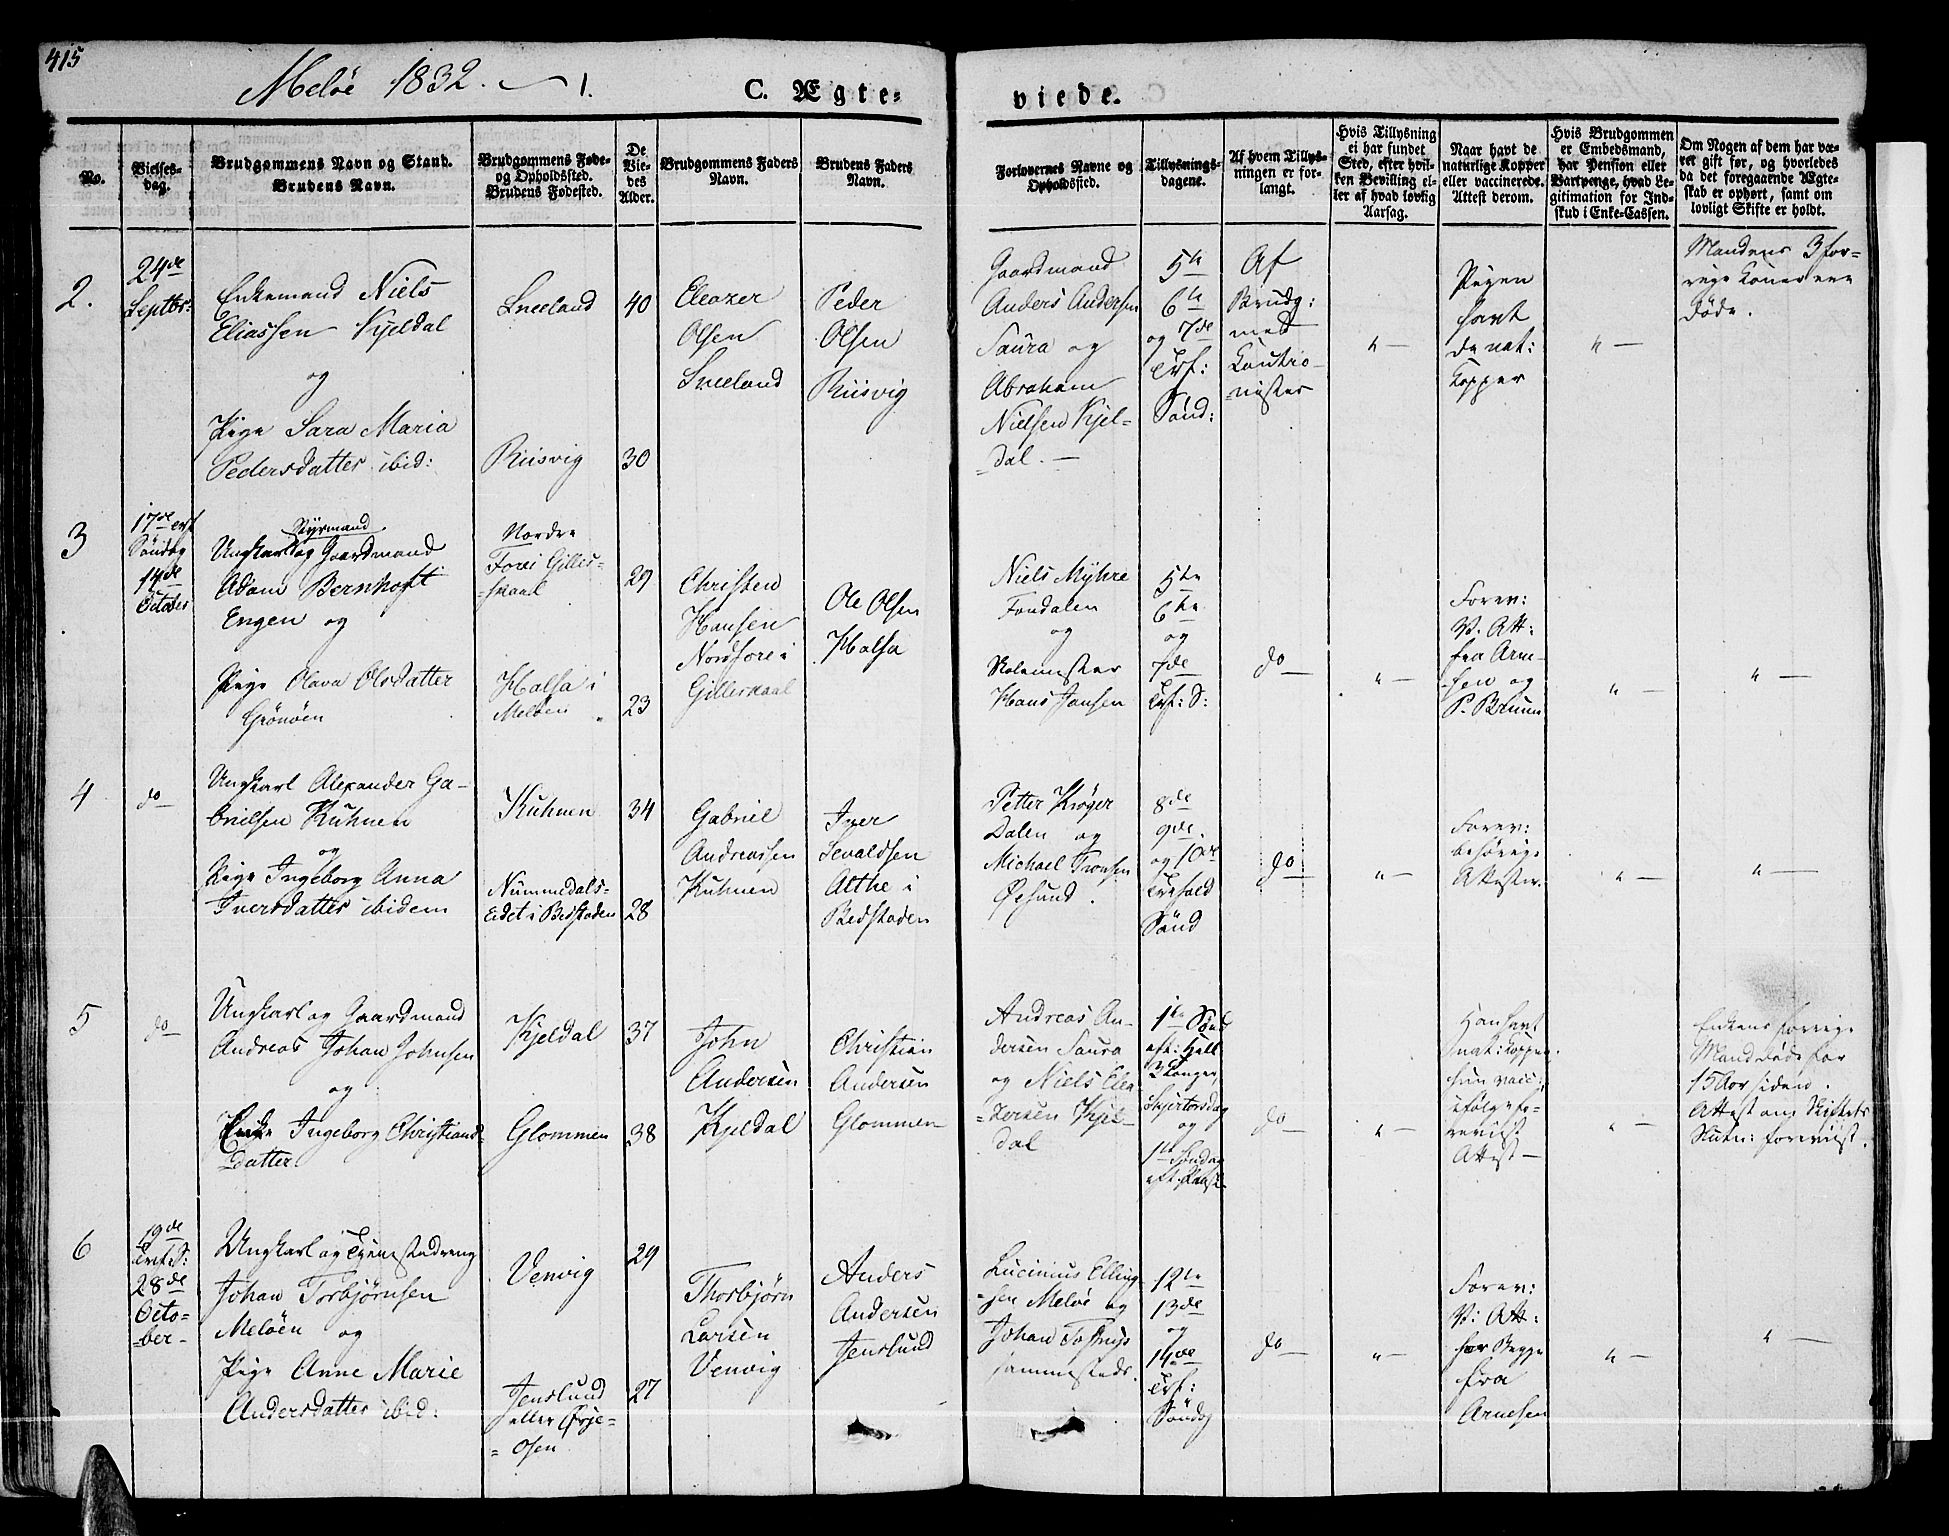 415
Meløe 1832. 1.
C. Ægte=
viede.
No.
Vielses-
dag.
Brudgommens Navn og Stand.
Brudens Navn.
Brudgommens Føde-
og Opholdssted.
Brudens Fødested.
De
Vie-
des
Alder.
Brudgommens Faders
Navn.
Brudens Faders
Navn.
Forlovernes Navne og
Opholdssted.
Tillysnings-
dagene.
Af hvem Tillys-
ningen er for-
langt.
Hvis Tillysning
ei har fundet
Sted, efter hvil-
ken Bevilling el-
ler af hvad lovlig
Aarsag.
Naar havt de
naturlige Kopper
eller vaccinerede.
Attest derom.
Hvis Brudgommen
er Embedsmand,
har Pension eller
Vartpenge, hvad Le-
gitimation for Ind-
skud i Enke-Cassen.
Om Nogen af dem har væ-
ret gift før, og hvorledes
da det foregaaende Ægte-
skab er ophørt, samt om
lovligt Skifte er holdt.
2.
24de
Septbr:
Enkemand Niels
Eliassen Kjeldal
og
Pige Sara Maria
Pedersdatter ibid:
Sneeland
Riisvig
40
30
Eleazer
Olsen
Sneeland
Peder
Olsen
Riisvig
Gaardmand
Anders Andersen
Saura og
Abraham
Nielsen Kjel-
dal. —
5te
6te
og 7de
Trf:
Sønd:
Af
Brudg:
med
Cautio-
nister
" —
Pigen
havt
de nat:
Kopper
" —
Mandens 3 for-
rige Koner ere
døde.
3
17de erf
Søndag
14de
October
Styrmand
Ungkarl og Gaardmand
Adam Bernhoft
Engen og
Pige Olava Olsdatter
Grönöen
Nordre
Fore i Gilles-
skaal
Halsa i
Meløen
29
23
Christen
Hansen
Nordfore i
Gilleskaal
Ole Olsen
Halsa
Niels Myhre
Fondalen
og
Skolemester
Hans Jansen
5te
6te
og
7de
Trf: S:
do —
" —
Forev:
V. Att:
fra Arne-
sen og
P. Bruun
" —
" —
4
do —
Ungkarl Alexander Ga-
brielsen Kuhnen
og
Pige Ingeborg Anna
Iversdatter ibidem
Kuhnen
Nummedals-
Eidet i Bedstaden
34
28
Gabriel
Andreassen
Kuhnen
Iver
Sevaldsen
Althe i
Bedstaden
Petter Krøger
Dalen og
Michael Tronsen
Øesund.
8de
9de.
og 10de
Trefold
Sønd
do —
" —
Forev:
behørige
Attester.
" —
" —
5
do —
Ungkarl og Gaardmand
Andreas Johan Johnsen
og
Enke Ingeborg Christians-
Datter
Kjeldal
Glommen
37
38
John
Andersen
Kjeldal
Christian
Andersen
Glommen
Andreas An-
dersen Saura
og Niels Elea-
zersen Kjel-
dal
1te Sønd
eft: Hell
3 Konger,
Skjertorsdag
og
1te Søndag
eft. Paaske
do —
" —
Han havt
nat: Kopper
hun vacc:
ifølge fo-
reviist
Attest —
" —
Enkens forrige
Mand døde for
15 Aar siden.
Attest om Skiftets
Slutn: foreviist.
6
19de
Trf. S:
28de
Octo-
ber —
Ungkarl og Tjenestedreng
Johan Torbjørnsen
Meløen og
Pige Anne Marie
Andersdatter ibid:
Venvig
Jenslund
eller Ørje-
osen
29
27
Thorbjørn
Larsen
Venvig
Anders
Andersen
Jenslund
Lucinius Elling-
sen Meløe og
Johan
sammesteds.
12te
13de
og
14de
Trf:
Søndag
do —
" —
Forev:
V: Att:
for Begge
fra
Arnesen
" —
" —